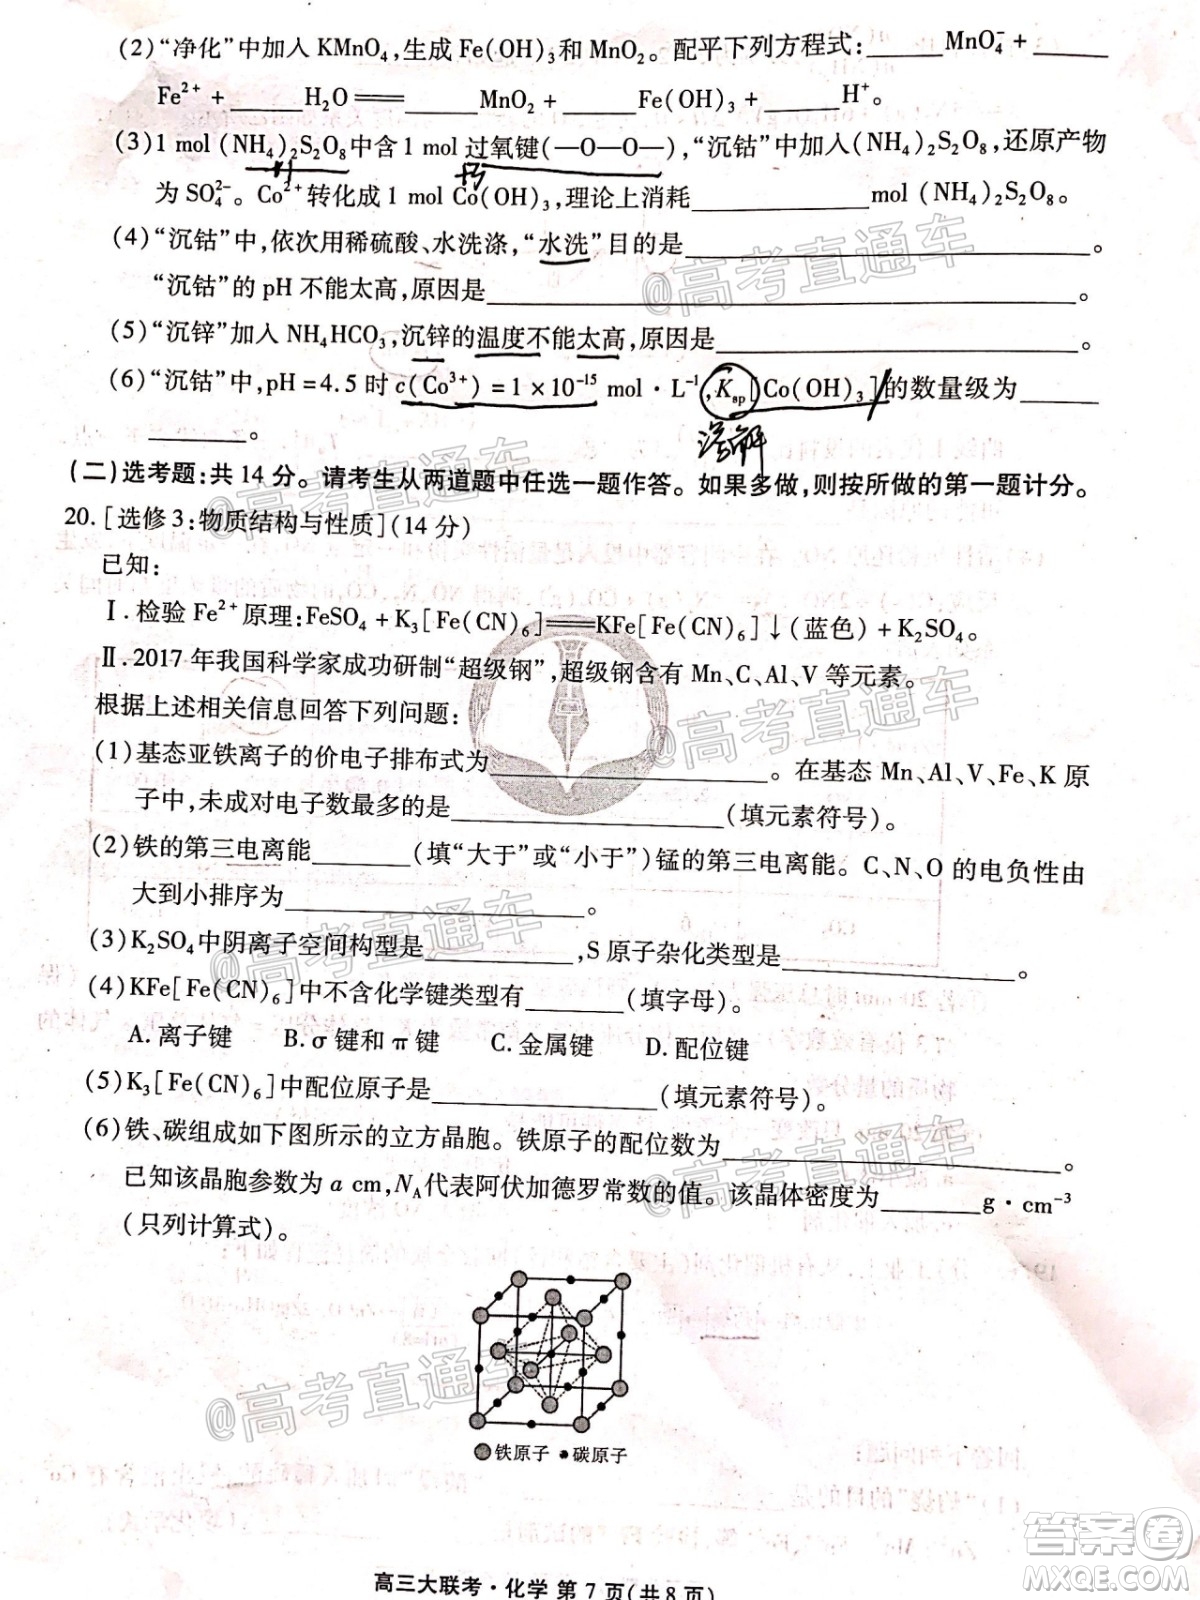 (2)“净化”中加入 KMnO₄,生成 Fe(OH)₃和 MnO₂。配平下列方程式:_____MnO₄⁻ + _____
Fe²⁺ + _____H₂O ═══ _____MnO₂ + _____Fe(OH)₃ + _____H⁺。
(3)1 mol (NH₄)₂S₂O₈中含 1 mol 过氧键(—O—O—),“沉钴”中加入(NH₄)₂S₂O₈,还原产物
为 SO₄²⁻。Co²⁺转化成 1 mol Co(OH)₃,理论上消耗__________mol (NH₄)₂S₂O₈。
(4)“沉钴”中,依次用稀硫酸、水洗涤,“水洗”目的是__________。
“沉钴”的 pH 不能太高,原因是__________。
(5)“沉锌”加入 NH₄HCO₃,沉锌的温度不能太高,原因是__________。
(6)“沉钴”中,pH=4.5 时 c(Co³⁺)=1×10⁻¹⁵ mol·L⁻¹,Ksp[Co(OH)₃]的数量级为_____
_____。
溶解
(二)选考题:共 14 分。请考生从两道题中任选一题作答。如果多做,则按所做的第一题计分。
20.[选修 3:物质结构与性质](14 分)
已知:
Ⅰ.检验 Fe²⁺原理:FeSO₄+K₃[Fe(CN)₆]═══KFe[Fe(CN)₆]↓(蓝色)+K₂SO₄。
Ⅱ.2017 年我国科学家成功研制“超级钢”,超级钢含有 Mn、C、Al、V 等元素。
根据上述相关信息回答下列问题:
(1)基态亚铁离子的价电子排布式为__________。在基态 Mn、Al、V、Fe、K 原
子中,未成对电子数最多的是__________(填元素符号)。
(2)铁的第三电离能_____(填“大于”或“小于”)锰的第三电离能。C、N、O 的电负性由
大到小排序为__________。
(3)K₂SO₄中阴离子空间构型是__________,S 原子杂化类型是__________。
(4)KFe[Fe(CN)₆]中不含化学键类型有_____(填字母)。
A.离子键 B.σ 键和 π 键 C.金属键 D.配位键
(5)K₃[Fe(CN)₆]中配位原子是__________(填元素符号)。
(6)铁、碳组成如下图所示的立方晶胞。铁原子的配位数为__________。
已知该晶胞参数为 a cm,N_A代表阿伏加德罗常数的值。该晶体密度为_____g·cm⁻³
(只列计算式)。
铁原子 碳原子
高三大联考·化学 第 7 页(共 8 页)
@高考直通车
@高考直通车
@高考直通车
@高考直通车
@高考直通车
答案卷
MXQE.COM